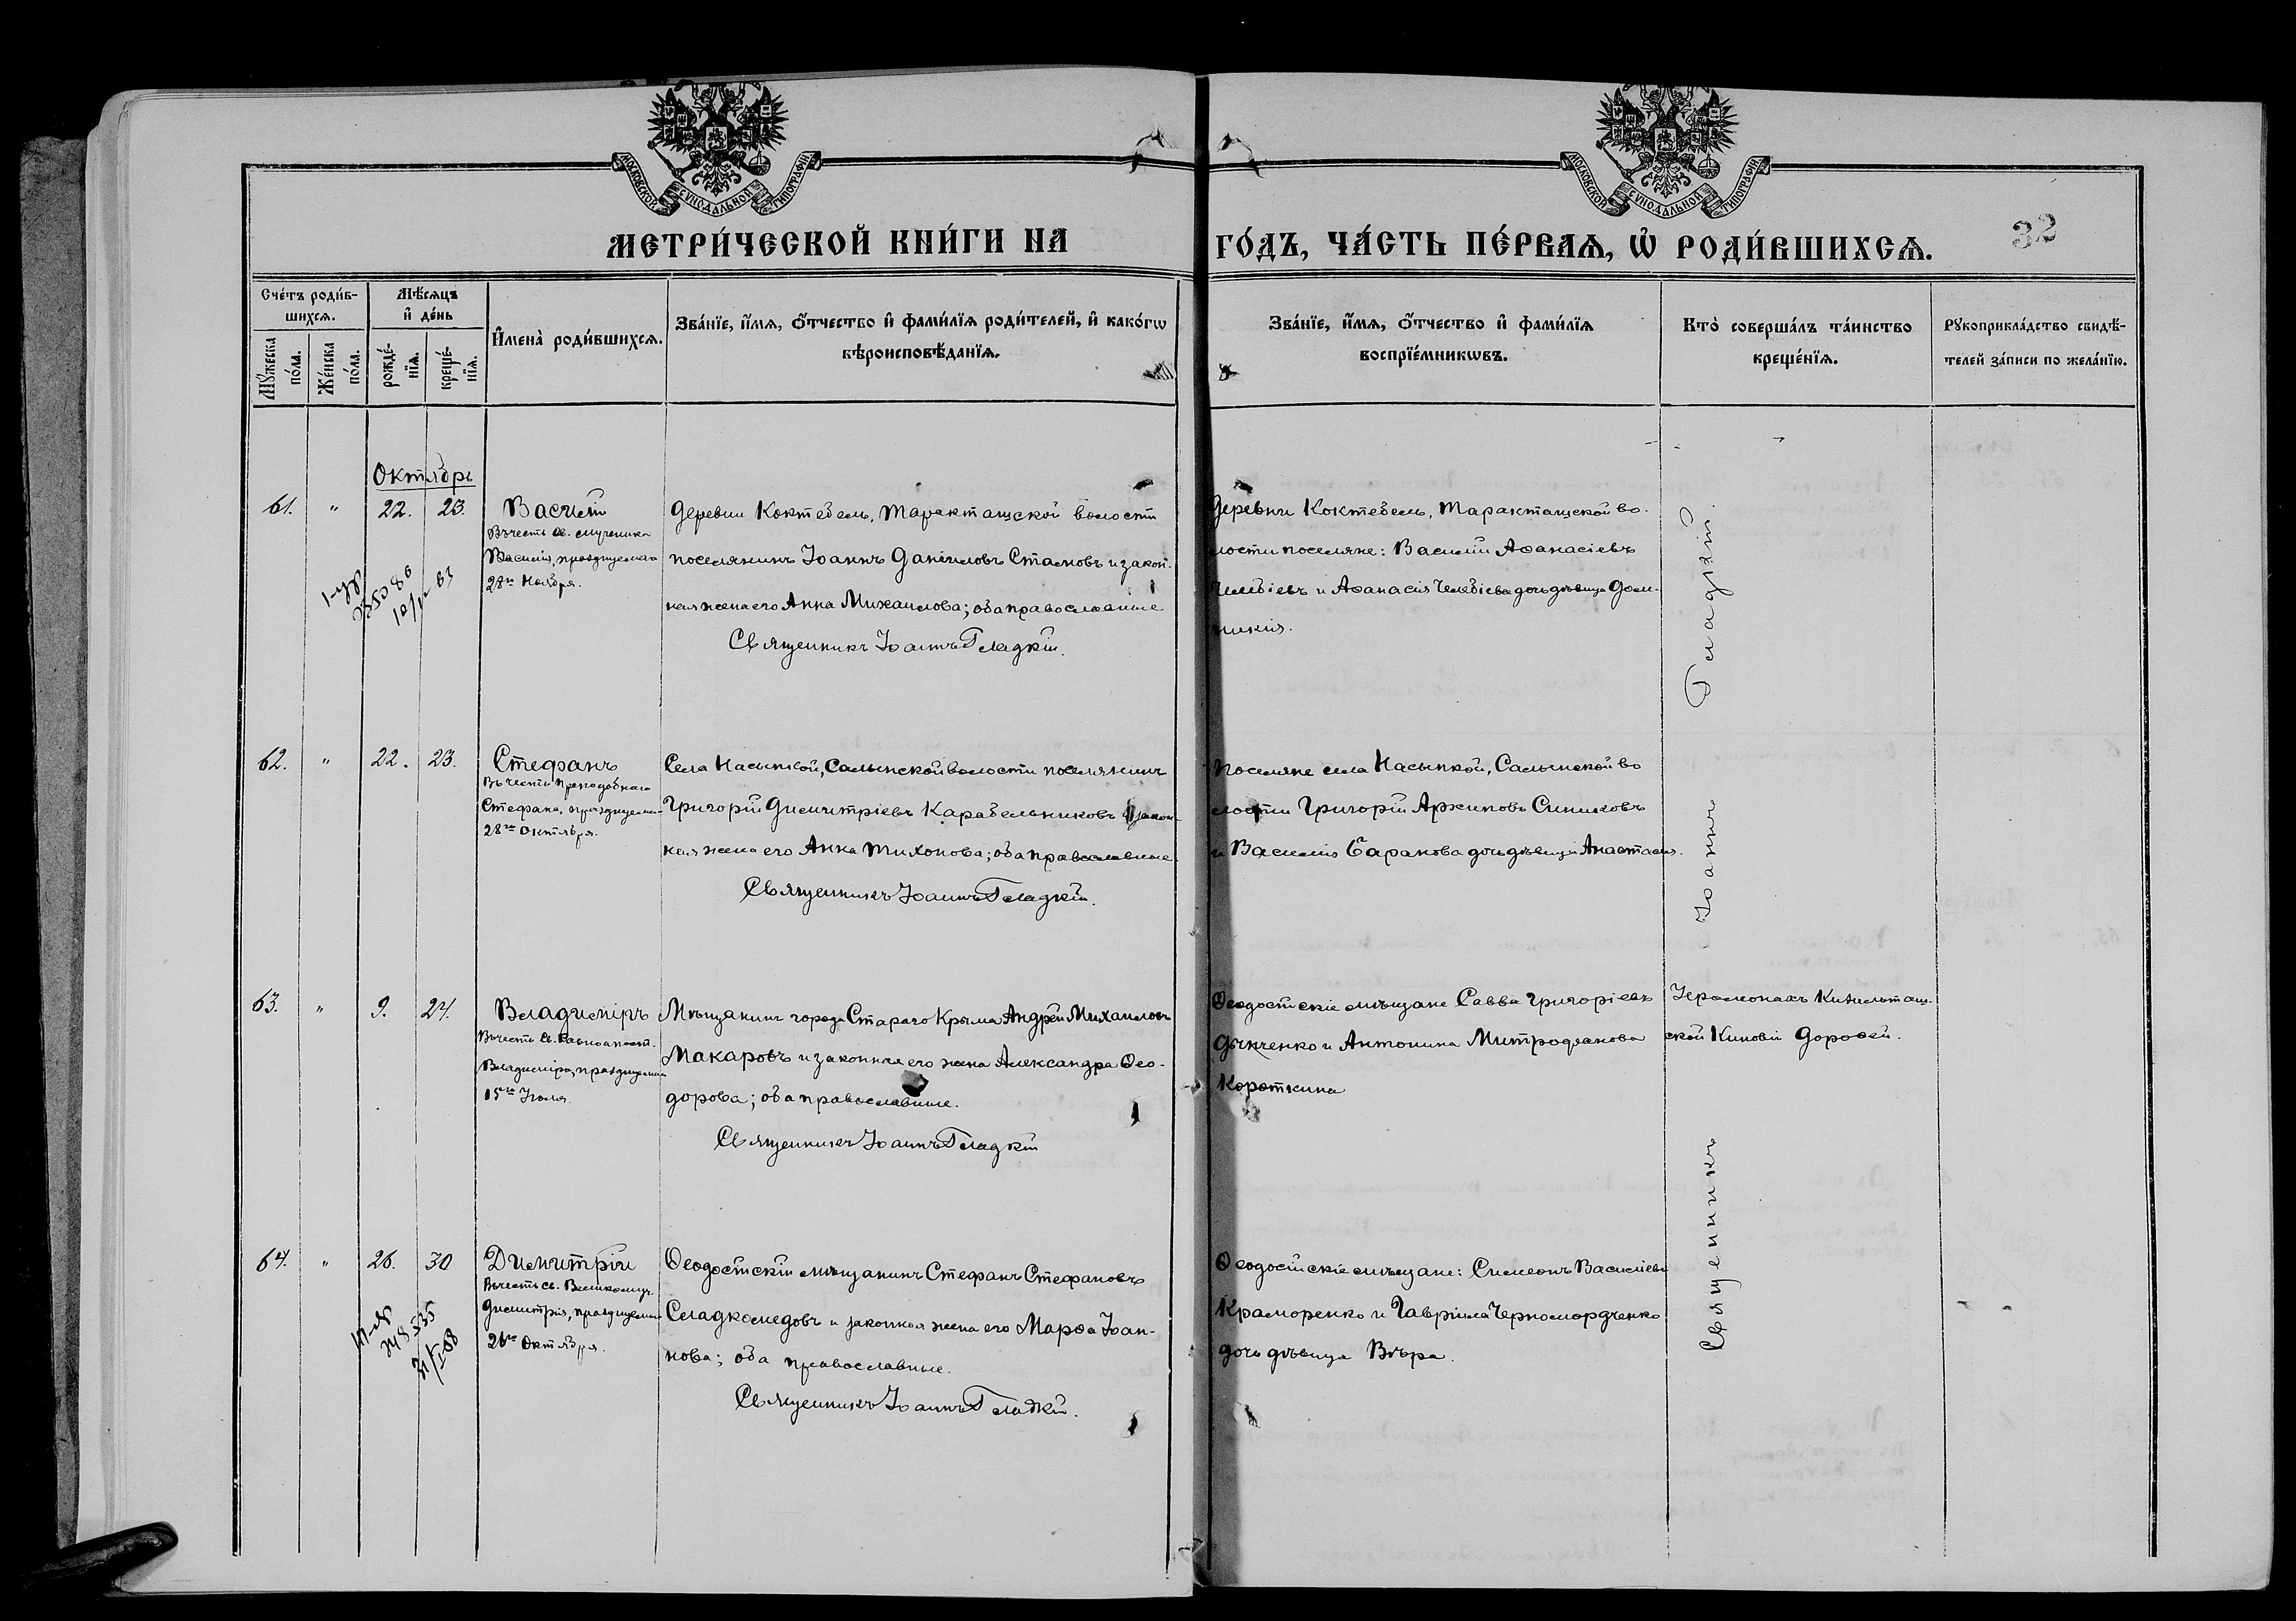 МОСКОВСКОЙ СУНОДАЛЬНОЙ ТИПОГРАФІИ
МОСКОВСКОЙ СУНОДАЛЬНОЙ ТИПОГРАФІИ
МЕТРИ́ЧЕСКОЙ КНИ́ГИ НА
ГО́ДЪ, ЧА́СТЬ ПЕ́РВАѦ, Ѡ҆ РОДИ́ВШИХСѦ.
32
Сче́тъ роди́в-
шихсѧ.
Мѣ́сѧцъ
и҆ де́нь
Мꙋ́жеска
по́ла.
Же́нска
по́ла.
рожде́-
нїѧ.
креще́-
нїѧ.
И҆мена̀ роди́вшихсѧ.
Зва́нїе, и҆́мѧ, ѻ҆́тчество и҆ фами́лїѧ роди́телей, и҆ како́гѡ
вѣроисповѣ́данїѧ.
Зва́нїе, и҆́мѧ, ѻ҆́тчество и҆ фами́лїѧ
воспрїе́мникѡвъ.
Кто̀ соверша́лъ та́инство
креще́нїѧ.
Рꙋкоприкла́дство свидѣ́-
телей за́писи по жела́нїю.
Октябрь
61. " 22. 23.
Василій
Въ честь св. мученика
Василія, празднуемаго
28го Ноября.
Деревни Коктебель, Таракташской волости
поселянинъ Іоаннъ Даніиловъ Стамовъ и закон-
ная жена его Анна Михаилова; оба православные
Священникъ Іоаннъ Гладкій.
Деревни Коктебель, Таракташской во-
лости поселяне: Василій Аѳанасіевъ
Челебіевъ и Аѳанасія Челебіева дочь дѣвица Дом-
никія.
62. " 22. 23.
Стефанъ
Въ честь Преподобнаго
Стефана, празднуемаго
28го Октября.
Села Насыпкой, Салынской волости поселянинъ
Григорій Димитріевъ Карабельниковъ и закон-
ная жена его Анна Тихонова; оба православные
Священникъ Іоаннъ Гладкій.
Поселяне села Насыпкой, Салынской во
лости Григорій Архиповъ Синиковъ
и Василія Баранова дочь дѣвица Анастасія.
63. " 9. 24.
Владиміръ
Въ честь св. Равноапост.
Владиміра, празднуемаго
15го Іюля.
Мѣщанинъ города Стараго Крыма Андрей Михаиловъ
Макаровъ и законная его жена Александра Ѳео-
дорова; оба православные.
Священникъ Іоаннъ Гладкій
Ѳеодосійскіе мѣщане Савва Григоріевъ
Дьяченко и Антонина Митрофанова
Короткина
Іеромонахъ Кизильташ-
ской Киновіи Дороѳей.
64. " 26. 30
Димитрій
Въ честь св. Великомуч.
Димитрія, празднуемаго
26го Октября.
Ѳеодосійскій мѣщанинъ Стефанъ Стефановъ
Сладкомедовъ и законная жена его Марѳа Іоан-
нова; оба православные.
Священникъ Іоаннъ Гладкій.
Ѳеодосійскіе мѣщане: Симеонъ Василіевъ
Краморенко и Гавріила Черномордченко
дочь дѣвица Вѣра.
Священникъ Іоаннъ Гладкій.